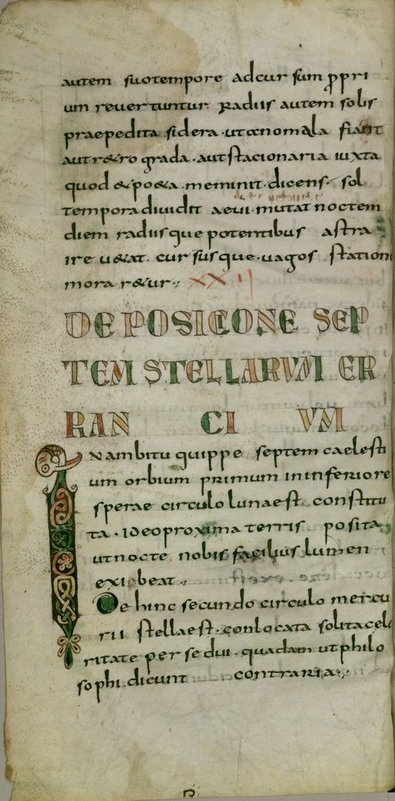 autem suo tempore ad cursum propri
um revertuntur. Radiis autem solis
praepedita sidera ut anomala fiant
aut retrograda. aut stacionaria iuxta
quod et poeta meminit. dicens. sol
tempora dividit aevi. mutat noctem
diem radiisque potentibus astra
ire vetat. cursusque vagos station
moraretur.. XXII
DE POSICIONE SEP
TEM STELLARUM ER
RAN CI UM
IN ambitu quippe septem caelesti
um orbium primum in inferiore
sperae circulo luna est constitu
ta. ideo proxima terris posita
ut nocte nobis facibus lumen
exibeat..
Dehinc secundo circulo mercu
rii stella est. conlocata solita cele
ritate per se dui. quadam ut philo
sophi dicunt contraria..